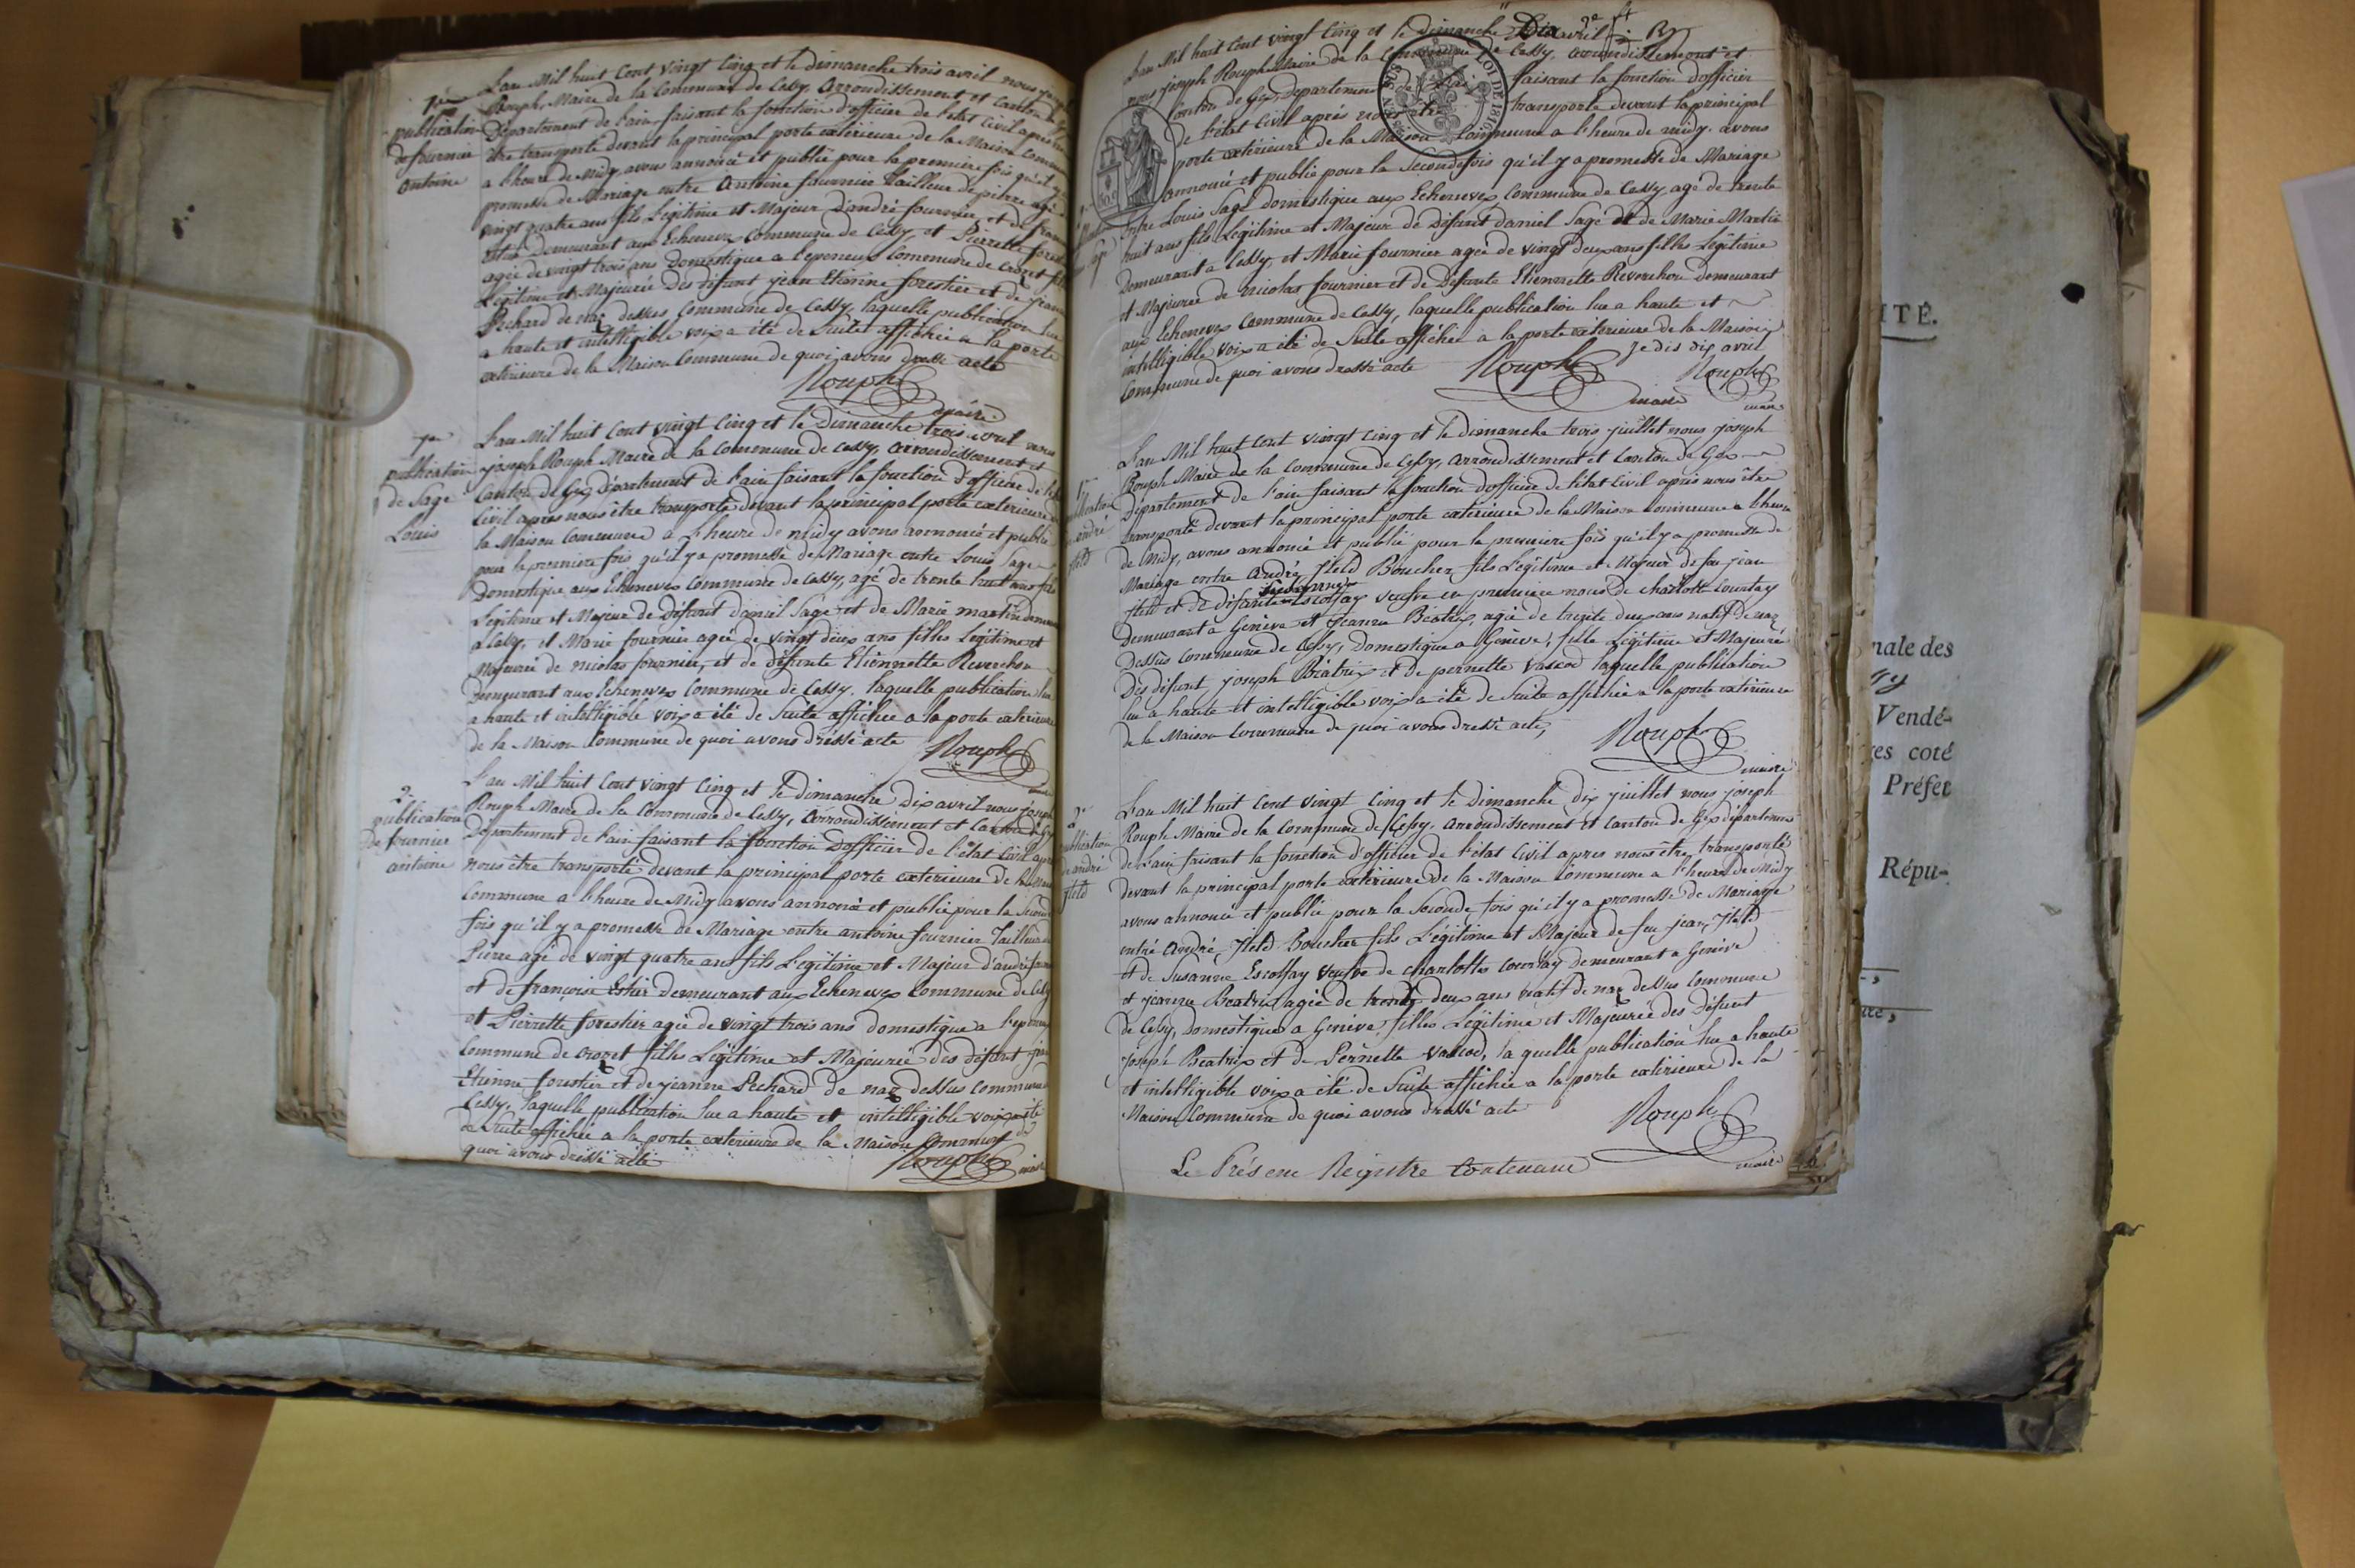 1ère
publication
de fournier
antoine
L'an Mil huit Cent vingt Cinq et le dimanche trois avril nous
Rouph, Maire de la Commune de Cessy, Arrondissement et Canton de
Département de l'ain, faisant la fonction d'officier de l'état Civil après
être transporté devant la principal porte extérieure de la Maison Commune
a l'heure de Midy, avons annoncé et publié pour la première fois qu'il y a
promesse de Mariage entre Antoine fournier Tailleur de pierre agé de
vingt quatre ans fils Légitime et Majeur d'andré fournier, et de
Demeurant aux Echenevex Commune de Cessy et Pierrette
agée de vingt trois ans Domestique a Commune de Crozet
Légitime et Majeurée des défunt jean Etienne forestier et de jeanne
Pechard de naz dessus Commune de Cessy, laquelle publication lue
a haute et intelligible voix a été de Suite affichée a la porte
extérieure de la Maison Commune de quoi avons dressé acte
Rouph
maire
1ère
publication
de Sage
Louis
L'an Mil huit Cent vingt Cinq et le Dimanche trois avril nous
joseph Rouph Maire de la Commune de Cessy, arrondissement et
Canton de Gex département de l'ain faisant la fonction d'officier de l'état
Civil après nous être transporté devant la principal porte extérieure de
la Maison Commune a l'heure de midy avons annoncé et publié
pour la première fois qu'il y a promesse de Mariage entre Louis Sage
Domestique aux Echenevex Commune de Cessy, agé de trente huit ans fils
Légitime et Majeur de Défunt daniel Sage et de Marie martin
a Cessy, et Marie fournier agée de vingt deux ans filles Légitime et
Majeurée de nicolas fournier, et de défunte Etiennette Reverchon
Demeurant aux Echenevex Commune de Cessy, laquelle publication lue
a haute et intelligible voix a été de Suite affichée a la porte extérieure
de la Maison Commune de quoi avons dressé acte
Rouph
2e
publication
de fournier
antoine
L'an Mil huit Cent vingt Cinq et le Dimanche Dix avril nous joseph
Rouph Maire de la Commune de Cessy, Arrondissement et Canton de Gex
Département de l'ain faisant la fonction D'officier de l'état Civil après
nous être transporté devant la principal porte extérieure de la Maison
Commune a l'heure de Midy avons annoncé et publié pour la Seconde
fois qu'il y a promesse de Mariage entre antoine fournier Tailleur de
Pierre agé de vingt quatre ans fils Légitime et Majeur d'andré
et de françoise Demeurant aux Echenevex Commune de Cessy
et Pierrette forestier agée de vingt trois ans domestique a
Commune de Crozet filles Légitime et Majeurée des défunt jean
Etienne forestier et de jeanne Pechard de naz dessus Commune
Cessy, laquelle publication lue a haute et intelligible voix a été
de Suite affichée a la porte extérieure de la Maison Commune de
quoi avons dressé acte
Rouph
maire
L'an Mil huit Cent vingt Cinq et le dimanche Dix avril
nous joseph Rouph Maire de la Commune de Cessy, arrondissement et
Canton de Gex, Département faisant la fonction d'officier
de l'état Civil après nous transporté devant la principal
porte extérieure de la Maison Commune a l'heure de midy avons
annoncé et publié pour la Seconde fois qu'il y a promesse de Mariage
entre Louis Sage domestique aux Echenevex Commune de Cessy agé de trente
huit ans fils Légitime et Majeur de Défunt daniel Sage et de Marie Martin
Demeurant a Cessy, et Marie fournier agée de vingt deux ans filles Légitime
et Majeurée de nicolas fournier et de Défunte Etiennette Reverchon demeurant
aux Echenevex Commune de Cessy, laquelle publication lue a haute et
intelligible voix a été de Suite affichée a la porte extérieure de la Maison
Commune de quoi avons dressé acte
Rouph
maire
Je dis dix avril
Rouph
maire
LOI DE 1816
1ere
publication
andré
field
L'an Mil huit Cent vingt Cinq et le dimanche trois juillet nous joseph
Rouph Maire de la Commune de Cessy, arrondissement et Canton de Gex
Département de l'ain faisant la fonction d'officier de l'état Civil après nous être
transporté devant la principal porte extérieure de la Maison Commune a l'heure
de Midy, avons annoncé et publié pour la première fois qu'il y a promesse de
Mariage entre André field Boucher fils Légitime et Majeur de feu jean
field et de défunte Escoffay veufve en première noce de charlotte Courtay
demeurant a Genève et jeanne Béatrix, agée de trente deux ans natif de naz
dessus Commune de Cessy, Domestique a Genève, fille Légitime et Majeurée
Des défunt joseph Béatrix et de pernette vascod laquelle publication
lue a haute et intelligible voix a été de Suite affichée a la porte extérieure
de la Maison Commune de quoi avons dressé acte,
Rouph
maire
2e
publication
de andré
field
L'an Mil huit Cent vingt Cinq et le Dimanche dix juillet nous joseph
Rouph Maire de la Commune de Cessy, arrondissement et Canton de Gex département
de l'ain faisant la fonction d'officier de l'état Civil apres nous être transporté
devant la principal porte extérieure de la Maison Commune a l'heure de Midy
avons annoncé et publié pour la Seconde fois qu'il y a promesse de Mariage
entre André field Boucher fils Légitime et Majeur de feu jean field
et de Susanne Escoffay Veufve de charlotte Courtay demeurant a Genève
et jeanne Beatrix agée de trente deux ans natif de naz dessus Commune
de Cessy, Domestique a Genève filles Légitime et Majeurée des Défunt
joseph Béatrix et de Pernette Vascod, laquelle publication lue a haute
et intelligible voix a été de Suite affichée a la porte extérieure de la
Maison Commune de quoi avons dressé acte
Rouph
maire
Le Présent Registre Contenant
ITÉ.
nale des
Vendé-
es coté
Préfet
Répu-